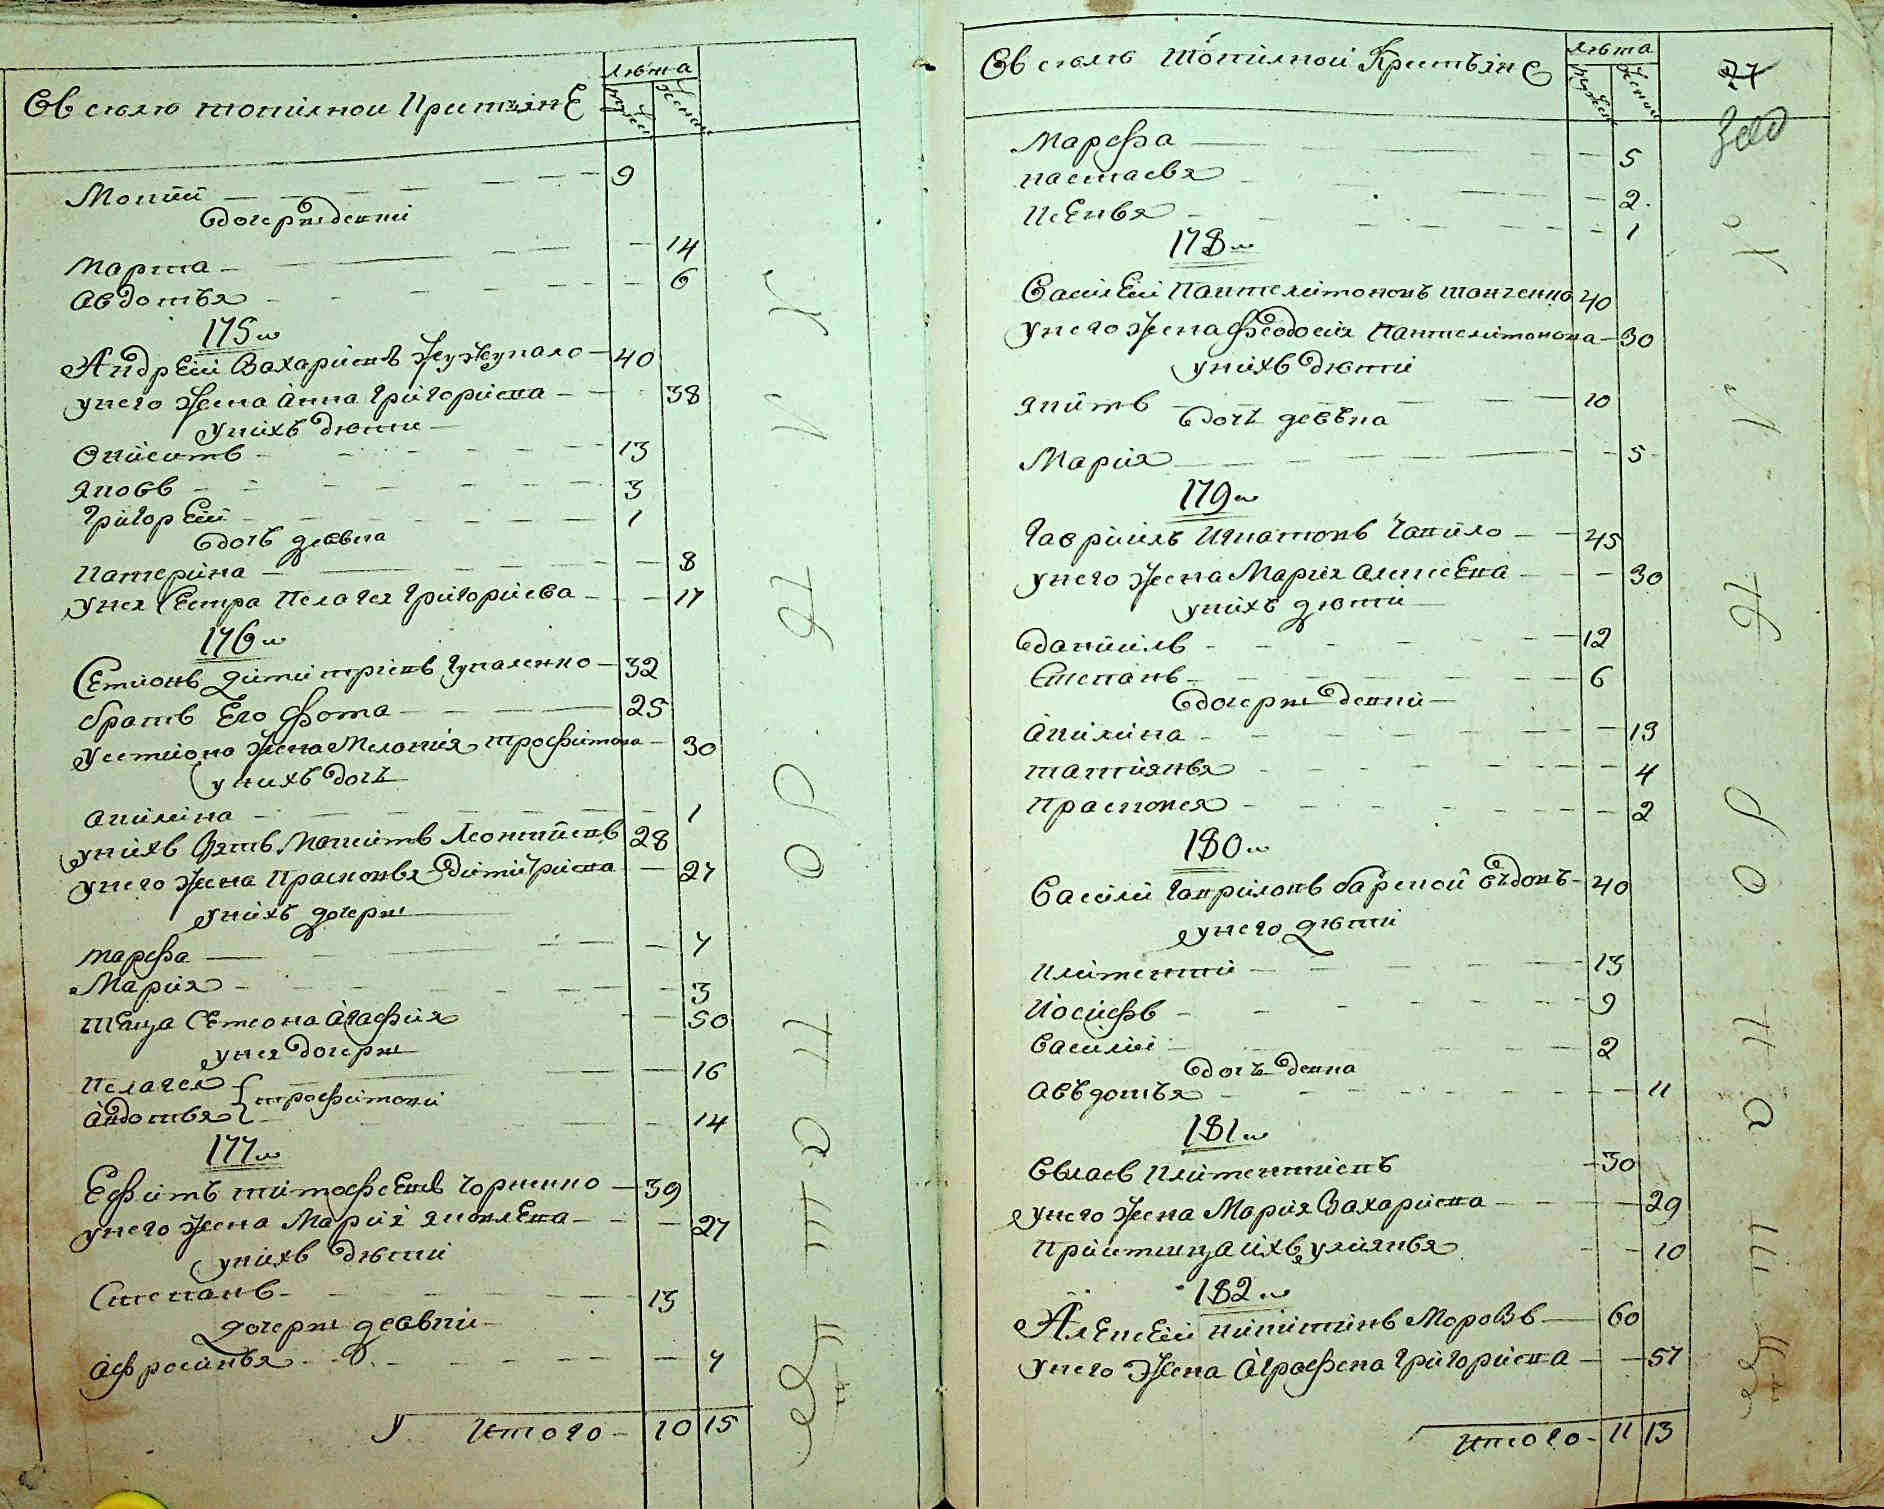 Въ селѣ топилной Крестьяне
лѣта
мужеск
женск
Мокий — 9
Дочери девки
Марта — 14
Авдотья — 6
175
Андрей Захариевъ Жужукало — 40
у него жена Анна Григориева — 38
у нихъ дѣти
Онисимъ — 13
Яковъ — 3
Григорей — 1
дочь девка
Катерина — 8
у нея сестра Пелагея Григориева — 17
176
Семионъ Димитриевъ Чупаленко — 32
братъ его Фома — 25
у Семиона жена Мелания Трофимова — 30
у нихъ дочь
Акилина — 1
у нихъ зять Максимъ Леонтиевъ 28
у него жена Прасковья Димитриева — 27
у нихъ дочери
Марфа — 7
Мария — 3
теща Семиона Агафия — 50
у нея дочери
Пелагея — 16
Трофимови
Авдотья — 14
177
Ефимъ Тимофеевъ — 39
у него жена Мария Яковлева — 27
у нихъ дѣти
Степанъ — 13
дочери девки
Афросинья — 7
У Итого — 10 15
Въ селѣ топилной Крестьяне
лѣта
мужеск
женск
77
Марфа — 5
Настасья — 2
Ксенья — 1
178
Василей Пантелимоновъ 40
у него жена Феодосия Пантелимонова — 30
у нихъ дѣти
Якимъ — 10
дочь девъка
Мария — 5
179
Гавриилъ Игнатовъ Чапило — 45
у него жена Мария Алексеева — 30
у нихъ дѣти
Даниилъ — 12
Степанъ — 6
дочери девки
Акилина — 13
Татиянья — 4
Прасковея — 2
180
Василий Гавриловъ вдовъ — 40
у него дѣти
Климентий — 13
Иосифъ — 9
Василий — 2
дочь девка
Авъдотья — 11
181
Влась Климентиевъ — 30
у него жена Мария Захариева — 29
Приимица ихъ Улиянья — 10
182
Алексей Никитинъ Морозъ — 60
у него жена Аграфена Григориева — 57
Итого — 11 13